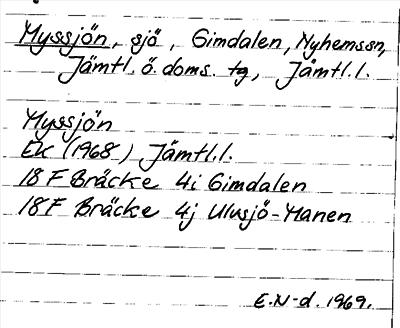 Myssjön, sjö, Gimdalen, Nyhemssn,
Jämtl. ö. doms. tg, Jämtl.l.
Myssjön
EK (1968) Jämtl.l.
18 F Bräcke 4i Gimdalen
18F Bräcke 4j Ulvsjö-Manen
E.N-d. 1969.